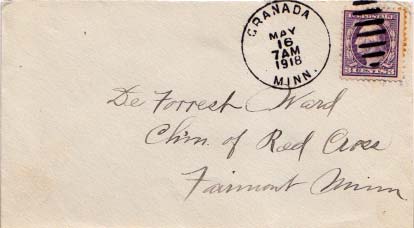 GRANADA
MAY
16
7AM
1918
MINN.
3 CENTS 3
De Forrest Ward
Chm. of Red Cross
Fairmont Minn